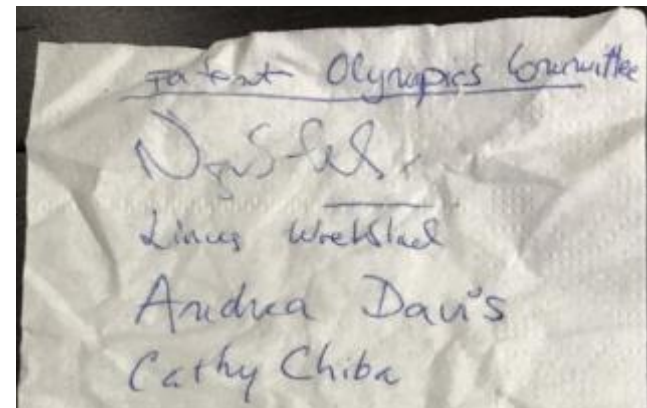 Patent Olympics Committee
Linus
Andrea Davis
Cathy Chiba